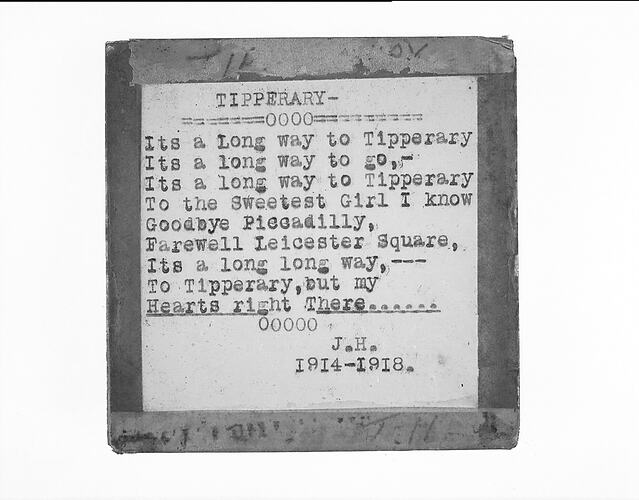 TIPPERARY-
=======OOOO==========
Its a Long way to Tipperary
Its a long way to go,-
Its a long way to Tipperary
To the Sweetest Girl I know
Goodbye Piccadilly,
Farewell Leicester Square,
Its a long long way,---
To Tipperary,but my
Hearts right There......
OOOOO
J.H.
1914-1918.